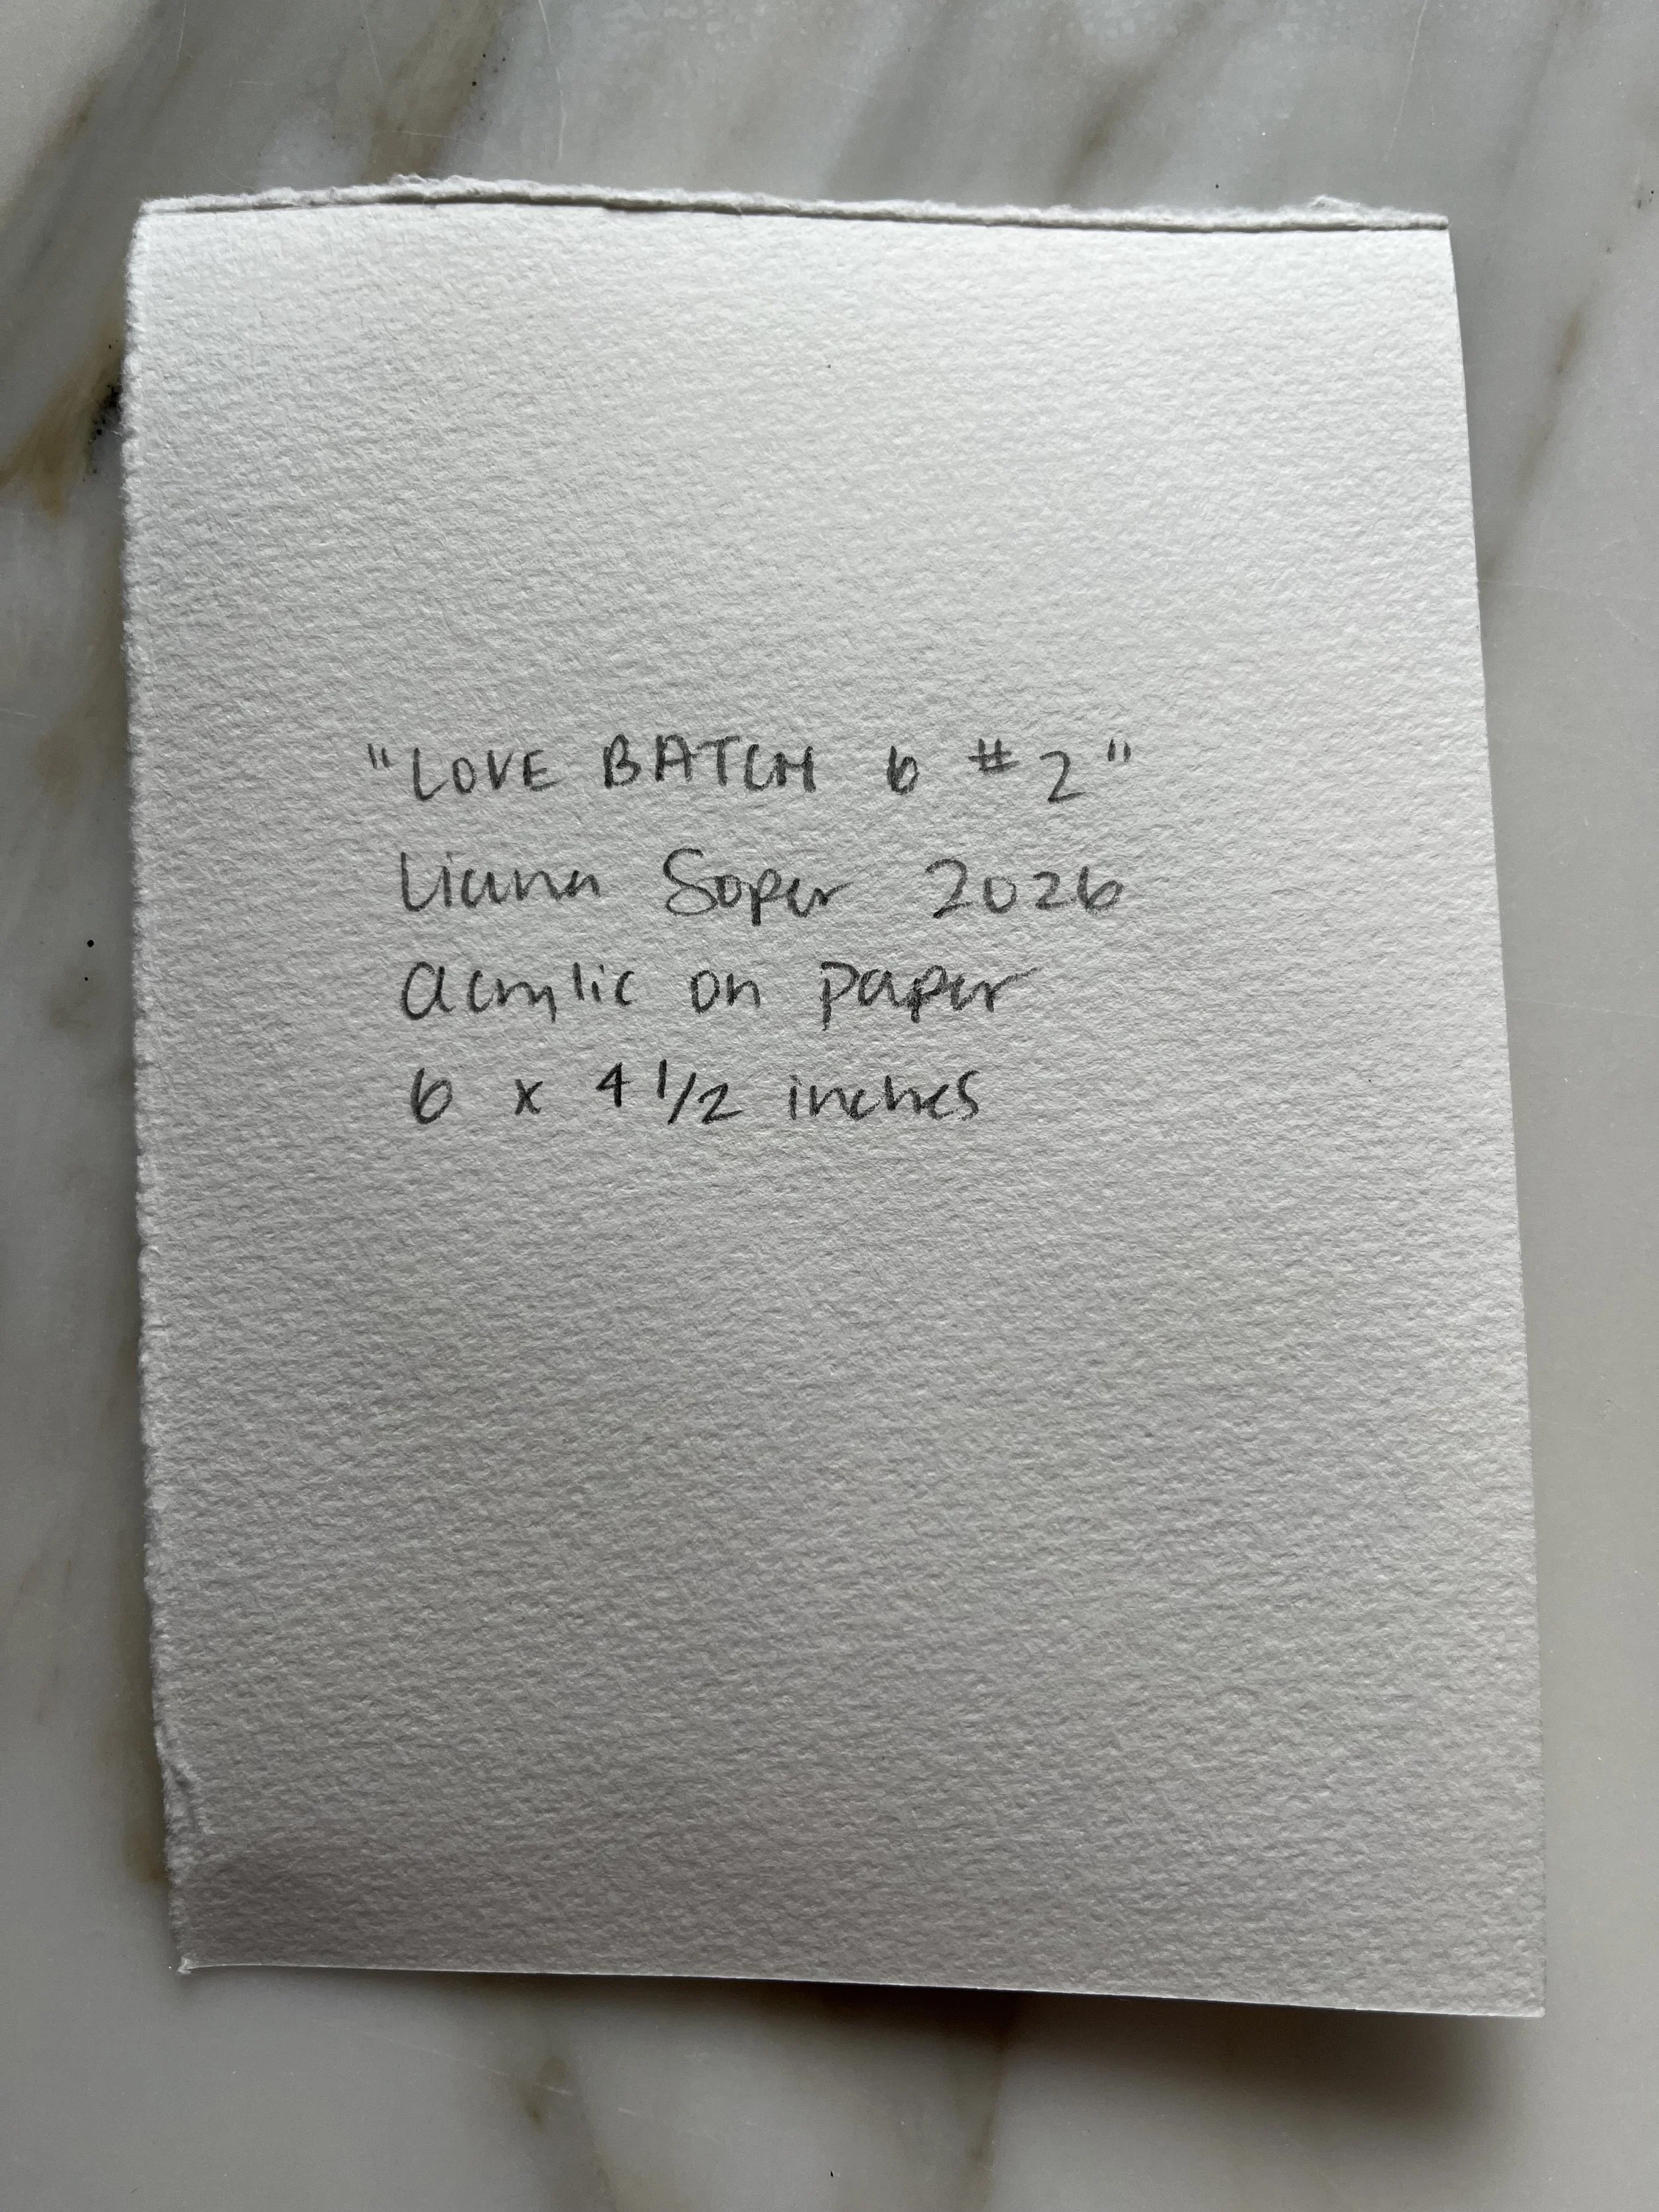 "LOVE BATCH 6 #2"
Liana Soper 2026
acrylic on paper
6 x 4 1/2 inches